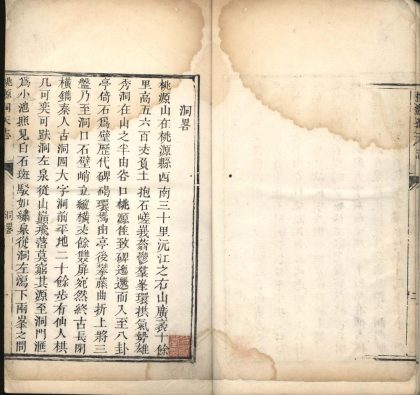 洞畧
桃源山在桃源縣西南三十里沅江之右山廣袤十餘
里高五六百丈負土抱石嵯峩蓊鬱羣峯環拱氣勢雄
秀洞在山之半由谷口桃源佳致碑迤邐而入至八卦
亭倚石爲壁歷代碑碣環焉由亭後攀藤曲折上將三
盤乃至洞口石壁峭立縱橫丈餘雙扉宛然終古長閉
橫鐫秦人古洞四大字洞前平地二十餘步有仙人棋
几可奕可趺洞左泉從山巔飛落莫窮其源至洞門滙
爲小池照見白石斑駁如繡泉從洞左瀉下兩峯之間
桃源洞天志
洞畧
一